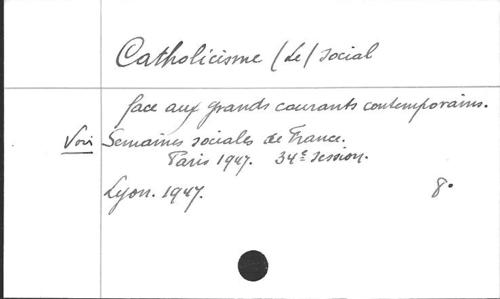 Catholicisme (Le) social
face aux grands courants contemporains.
Voir Semaines sociales de France.
Paris 1947. 34e session.
Lyon. 1947. 8o